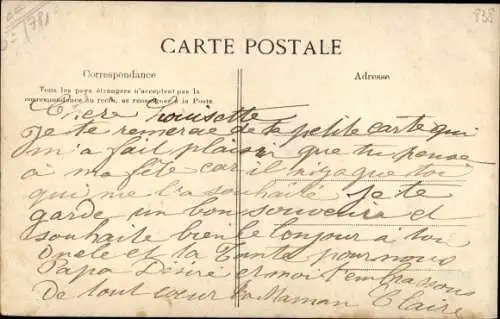 (78)
838
CARTE POSTALE
Correspondance
Adresse
Tous les pays étrangers n'acceptent pas la
correspondance au recto, se renseigner à la Poste
Chere Louisette
Je te remercie de ta petite carte qui
m'a fait plaisir que tu pense
à ma fête car il n'y a que toi
qui me l'a souhaité je te
garde un bon souvenir et
souhaite bien le bonjour à ton
Oncle et ta Tante pour nous
Papa Désiré et moi t'embrassons
De tout cœur ta Maman Claire